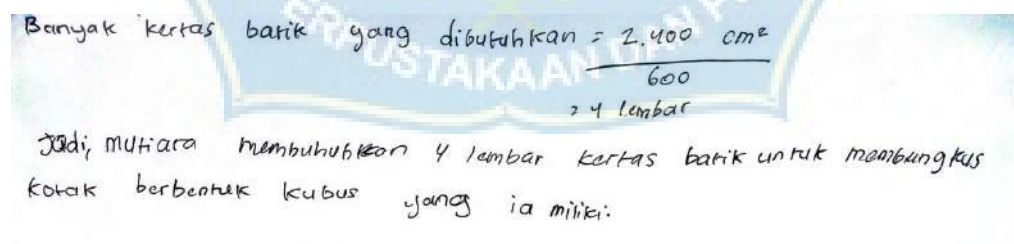 Banyak kertas batik yang dibutuhkan = 2.400 cm²
600
= 4 lembar
Jadi, mutiara membuhuhkan 4 lembar kertas batik untuk membungkus
kotak berbentuk kubus yang ia miliki.